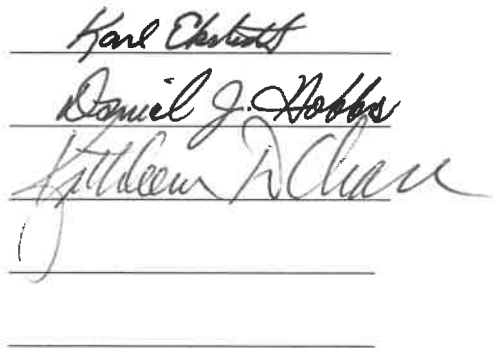 Karl Ekstedt
Daniel J. Hobbs
Kathleen D Chase